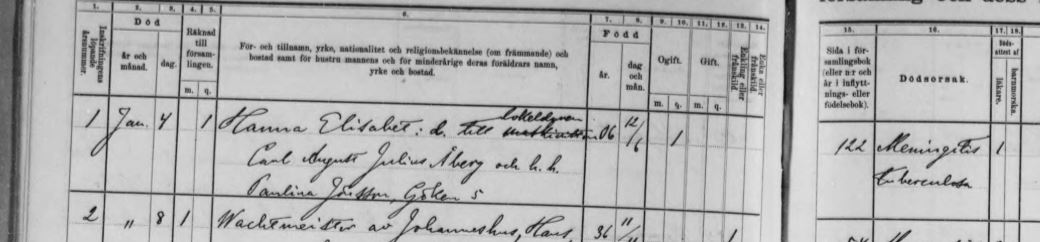 1. 2. 3. 4. 5. 6. 7. 8. 9. 10. 11. 12. 13. 14. 15. 16. 17. 18.
Inskrifningens löpande årsnummer.
Död
år och månad.
dag.
Räknad till församlingen.
m. q.
För- och tillnamn, yrke, nationalitet och religionsbekännelse (om främmande) och
bostad samt för hustru mannens och för minderårige deras föräldrars namn,
yrke och bostad.
Född
år.
dag och mån.
Ogift.
m. q.
Gift.
m. q.
Enkling eller frånskild
Enka eller frånskild
Sida i församlingsbok (eller n:r och år i inflyttnings- eller födelsebok).
Dödsorsak.
läkare.
barnmorska.
1 Jan. 4 1 Hanna Elisabet: d. till eokeldaren 06 12/6 1 122 Meningitis 1
Carl August Julius Åberg och h. h. tuberculosa
Paulina Jönsson, Göken 5
2 " 8 1 Wachtmeister av Johannishus, Hans, 36 11/